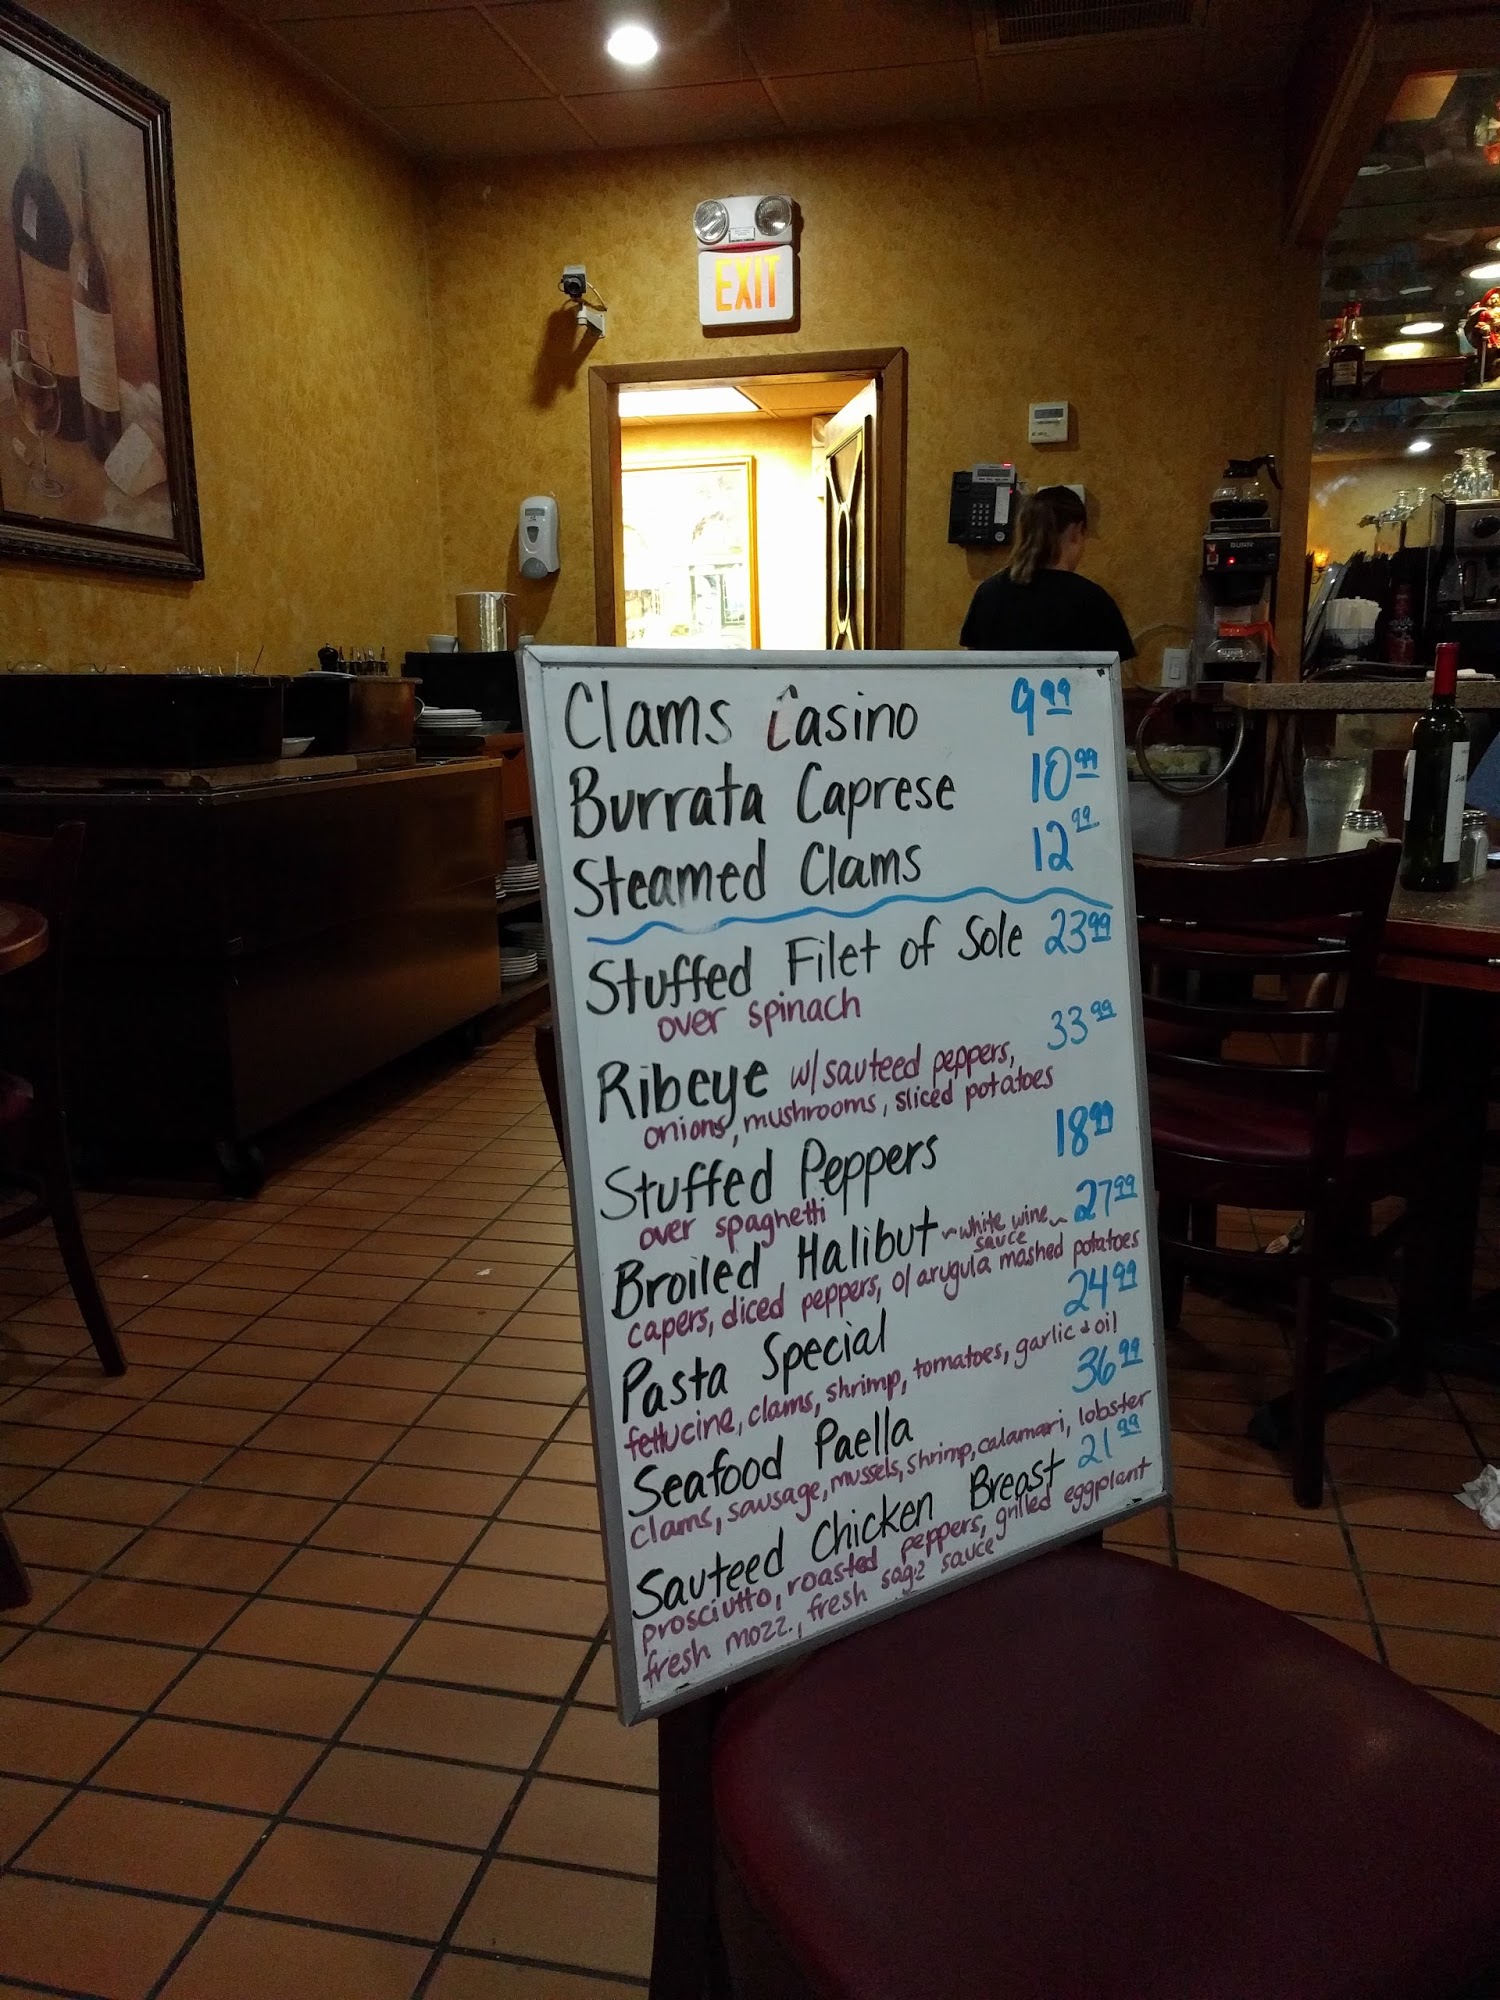 EXIT
BUNN
Clams Casino 9.99
Burrata Caprese 10.99
Steamed Clams 12.99
Stuffed Filet of Sole 23.99
over spinach
Ribeye w/ sauteed peppers, 33.99
onions, mushrooms, sliced potatoes
Stuffed Peppers 18.99
over spaghetti
Broiled Halibut ~white wine~ 27.99
sauce
capers, diced peppers, o/ arugula mashed potatoes
Pasta Special 24.99
fettucine, clams, shrimp, tomatoes, garlic & oil
Seafood Paella 36.99
clams, sausage, mussels, shrimp, calamari, lobster
Sauteed Chicken Breast 21.99
prosciutto, roasted peppers, grilled eggplant
fresh mozz., fresh sage sauce